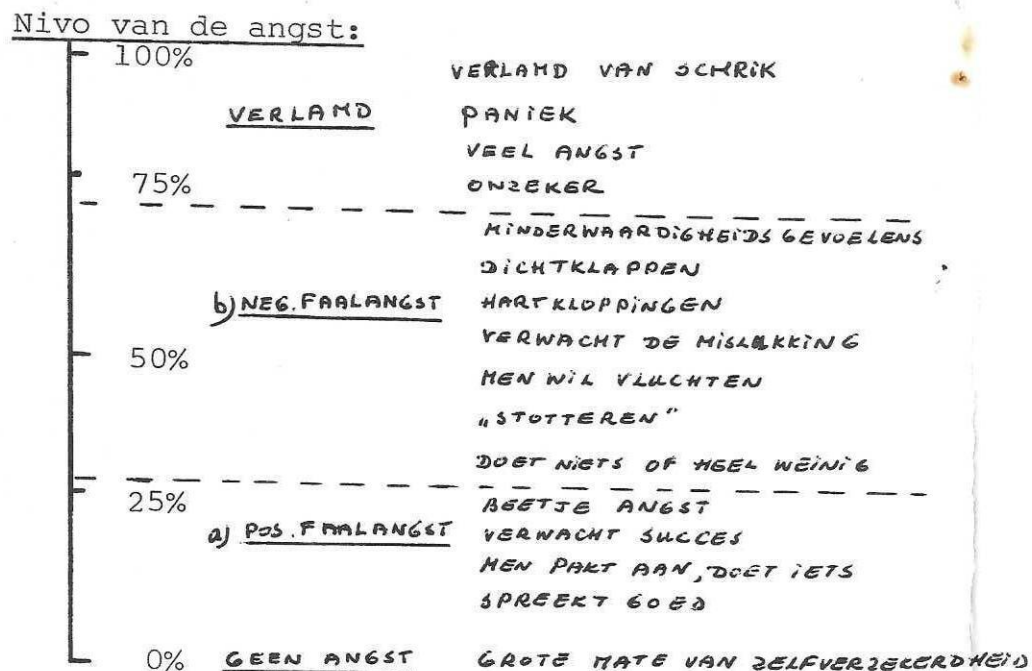 Nivo van de angst:
100%
VERLAMD VAN SCHRIK
VERLAMD PANIEK
VEEL ANGST
75% ONZEKER
MINDERWAARDIGHEIDSGEVOELENS
DICHTKLAPPEN
b) NEG. FAALANGST HARTKLOPPINGEN
VERWACHT DE MISLUKKING
50%
MEN WIL VLUCHTEN
„STOTTEREN"
DOET NIETS OF HEEL WEINIG
25% BEETJE ANGST
a) POS. FAALANGST VERWACHT SUCCES
MEN PAKT AAN, DOET IETS
SPREEKT GOED
0% GEEN ANGST GROTE MATE VAN ZELFVERZEKERDHEID